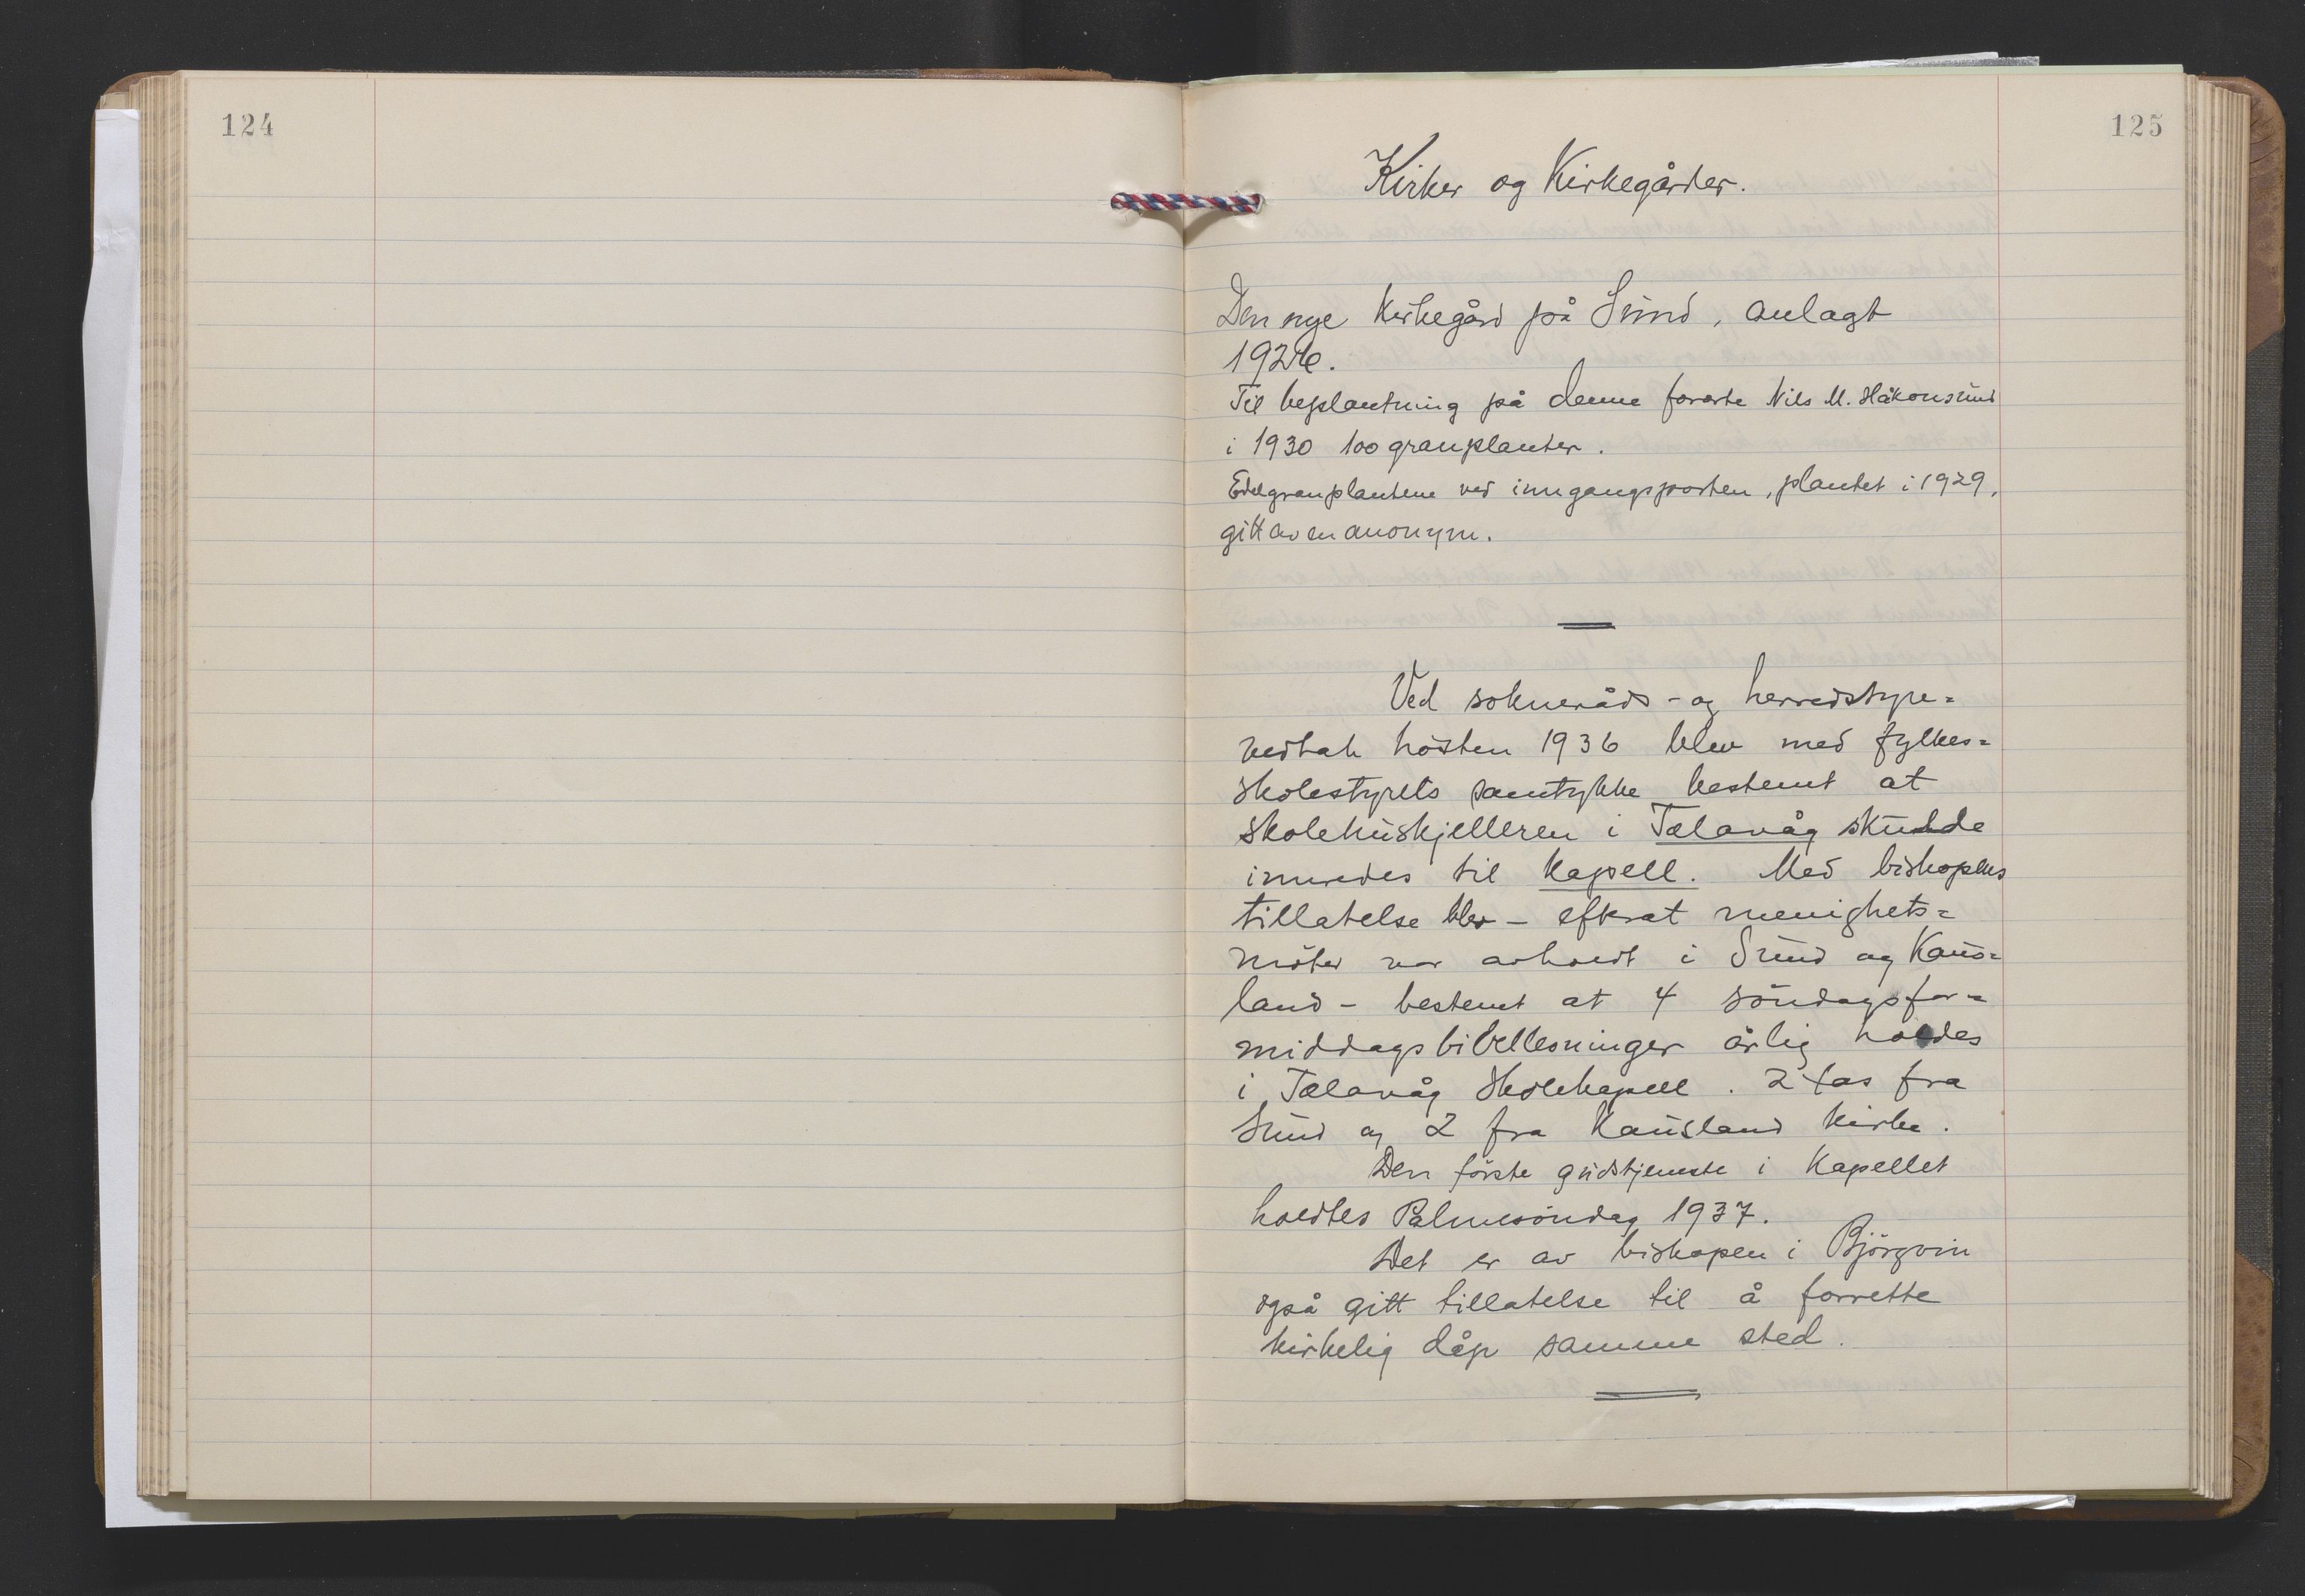 124
125
Kirker og Kirkegårder.
Den nye kirkegård på Sund, anlagt
1926.
Til beplantning på denne forærte Nils M. Håkonsund
i 1930 100 granplanter.
Edelgranplantene ved inngangsporten, plantet i 1929,
gitt av en anonym.
Ved sokneråds- og herredstyre=
vedtak hösten 1936 blev med fylkes=
skolestyrets samtykke bestemt at
skolehuskjelleren i Tælavåg skulde
innredes til kapell. Med biskopens
tillatelse blev - efterat menighets=
möter var avholdt i Sund og Kaus=
land - bestemt at 4 söndagsfor=
middagsbibellesninger årlig holdes
i Tælavåg Skolekapell. 2 tas fra
Sund og 2 fra Kausland kirke.
Den förste gudstjeneste i Kapellet
holdtes Palmesöndag 1937.
Det er av biskopen i Björgvin
også gitt tillatelse til å forrette
kirkelig dåp samme sted.